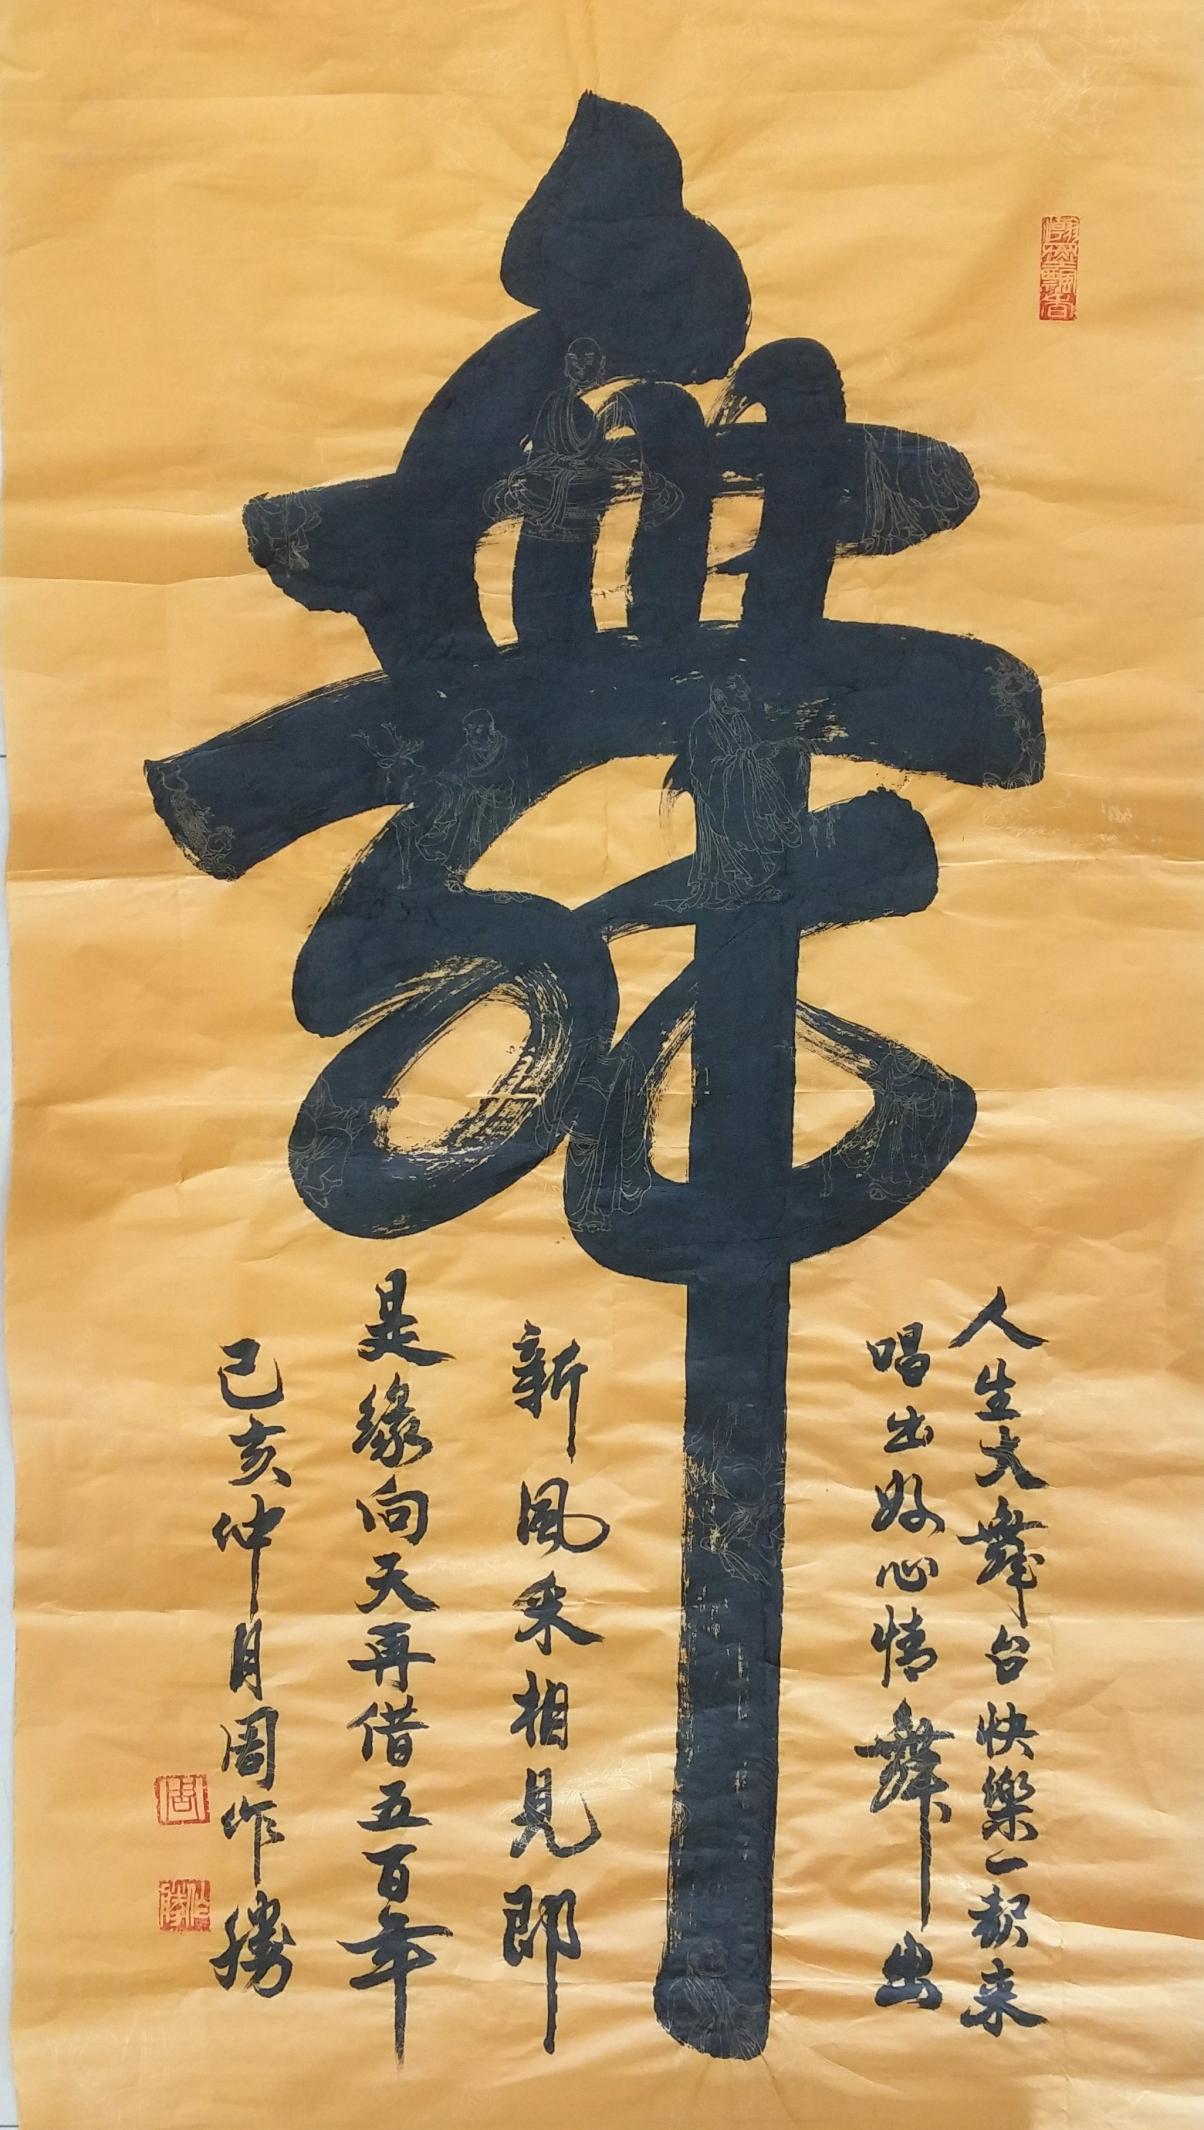 舞
人生大舞台快樂一起来
唱出好心情舞出
新風采相見即
是缘向天再借五百年
己亥仲月周作勝
周
作勝